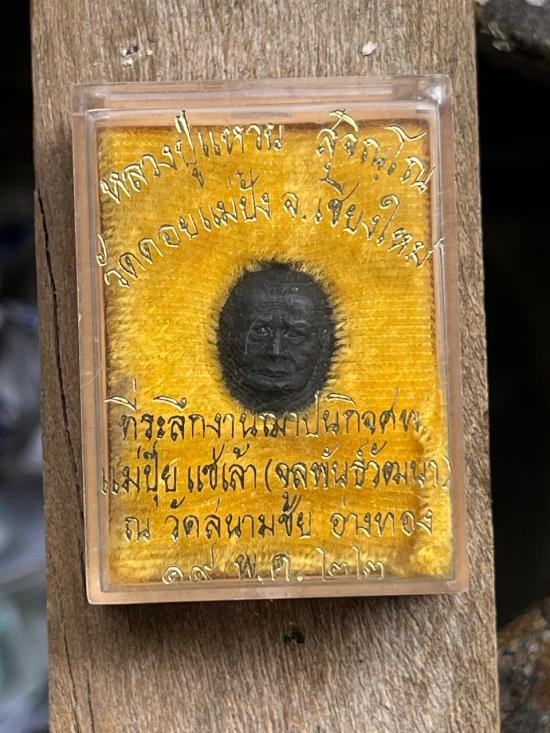 หลวงปู่แหวน สุจิณฺโณ
วัดดอยแม่ปั๋ง จ.เชียงใหม่
ที่ระลึกงานฌาปนกิจศพ
แม่ปุ๊ย แซ่เล้า (จุลพันธ์วัฒนา)
ณ วัดสนามชัย อ่างทอง
๑๙ พ.ค. ๒๒